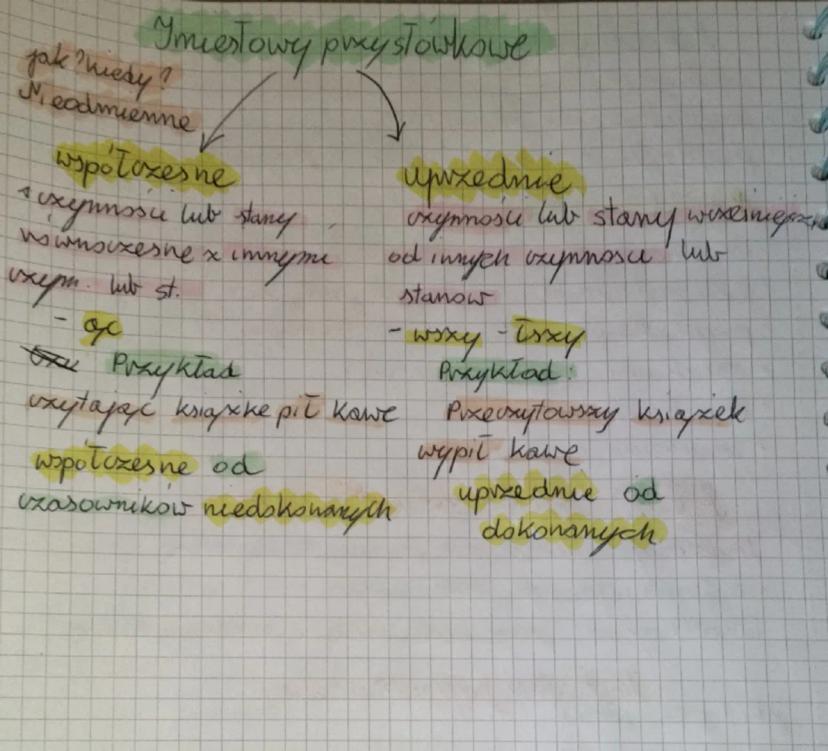 Imiesłowy przysłówkowe
jak? kiedy?
Nieodmienne
współczesne
czynności lub stany
równoczesne z innymi
czyn. lub st.
- ąc
Przykład
czytając książkę pił kawę
współczesne od
czasowników niedokonanych
uprzednie
czynności lub stany wcześniejsze
od innych czynności lub
stanów
- wszy - łszy
Przykład:
Przeczytawszy książek
wypił kawę
uprzednie od
dokonanych